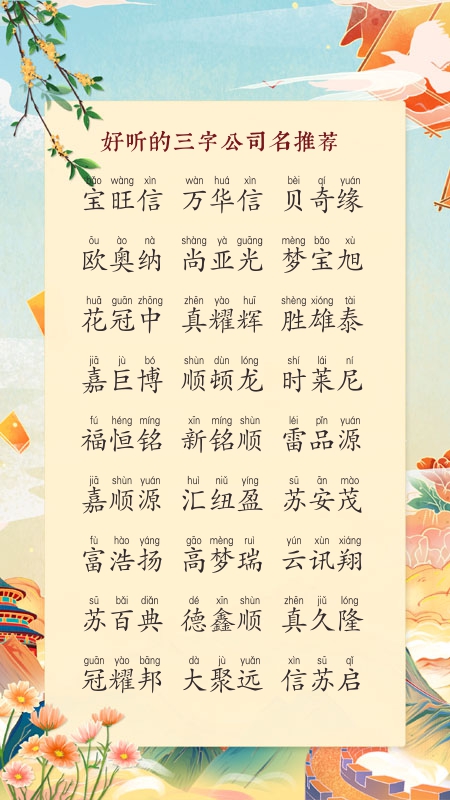 好听的三字公司名推荐
bǎo wàng xìn wàn huá xìn bèi qí yuán
宝旺信 万华信 贝奇缘
ōu ào nà shàng yà guāng mèng bǎo xù
欧奥纳 尚亚光 梦宝旭
huā guān zhōng zhēn yào huī shèng xióng tài
花冠中 真耀辉 胜雄泰
jiā jù bó shùn dùn lóng shí lái ní
嘉巨博 顺顿龙 时莱尼
fú héng míng xīn míng shùn léi pǐn yuán
福恒铭 新铭顺 雷品源
jiā shùn yuán huì niǔ yíng sū ān mào
嘉顺源 汇纽盈 苏安茂
fù hào yáng gāo mèng ruì yún xùn xiáng
富浩扬 高梦瑞 云讯翔
sū bǎi diǎn dé xīn shùn zhēn jiǔ lóng
苏百典 德鑫顺 真久隆
guān yào bāng dà jù yuǎn xìn sū qǐ
冠耀邦 大聚远 信苏启